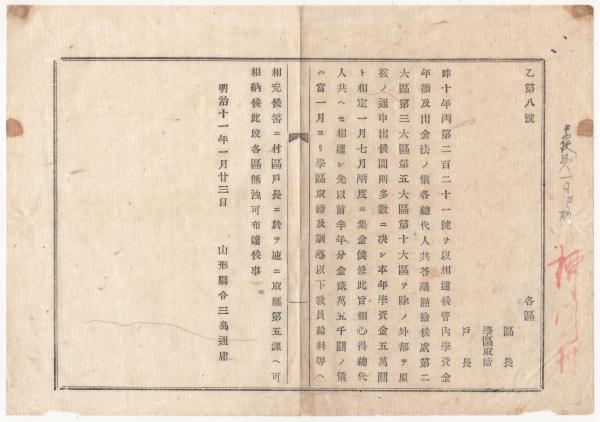 乙第八號
各區
區長
學區取締
戶長
昨十年丙第二百二十一號ヲ以相達候管內學資金
年額及出金法ノ儀各總代人共答議點撿候處第二
大區第三大區第五大區第十大區ヲ除ノ外部ヲ原
按ノ通申出候間則多數ニ決シ本年學資金五萬圓
ト相定一月七月兩度ニ集金候條此旨相心得總代
人共ヘモ相達シ先以前半年分金貳萬五千圓ノ儀
ハ當一月ヨリ學區取締及訓導以下敎員給料等ヘ
相充候筈ニ付區戶長ニ於テ速ニ取纒第五課ヘ可
相納候此段各區無洩可布達候事
明治十一年一月廿三日
山形縣令三島通庸